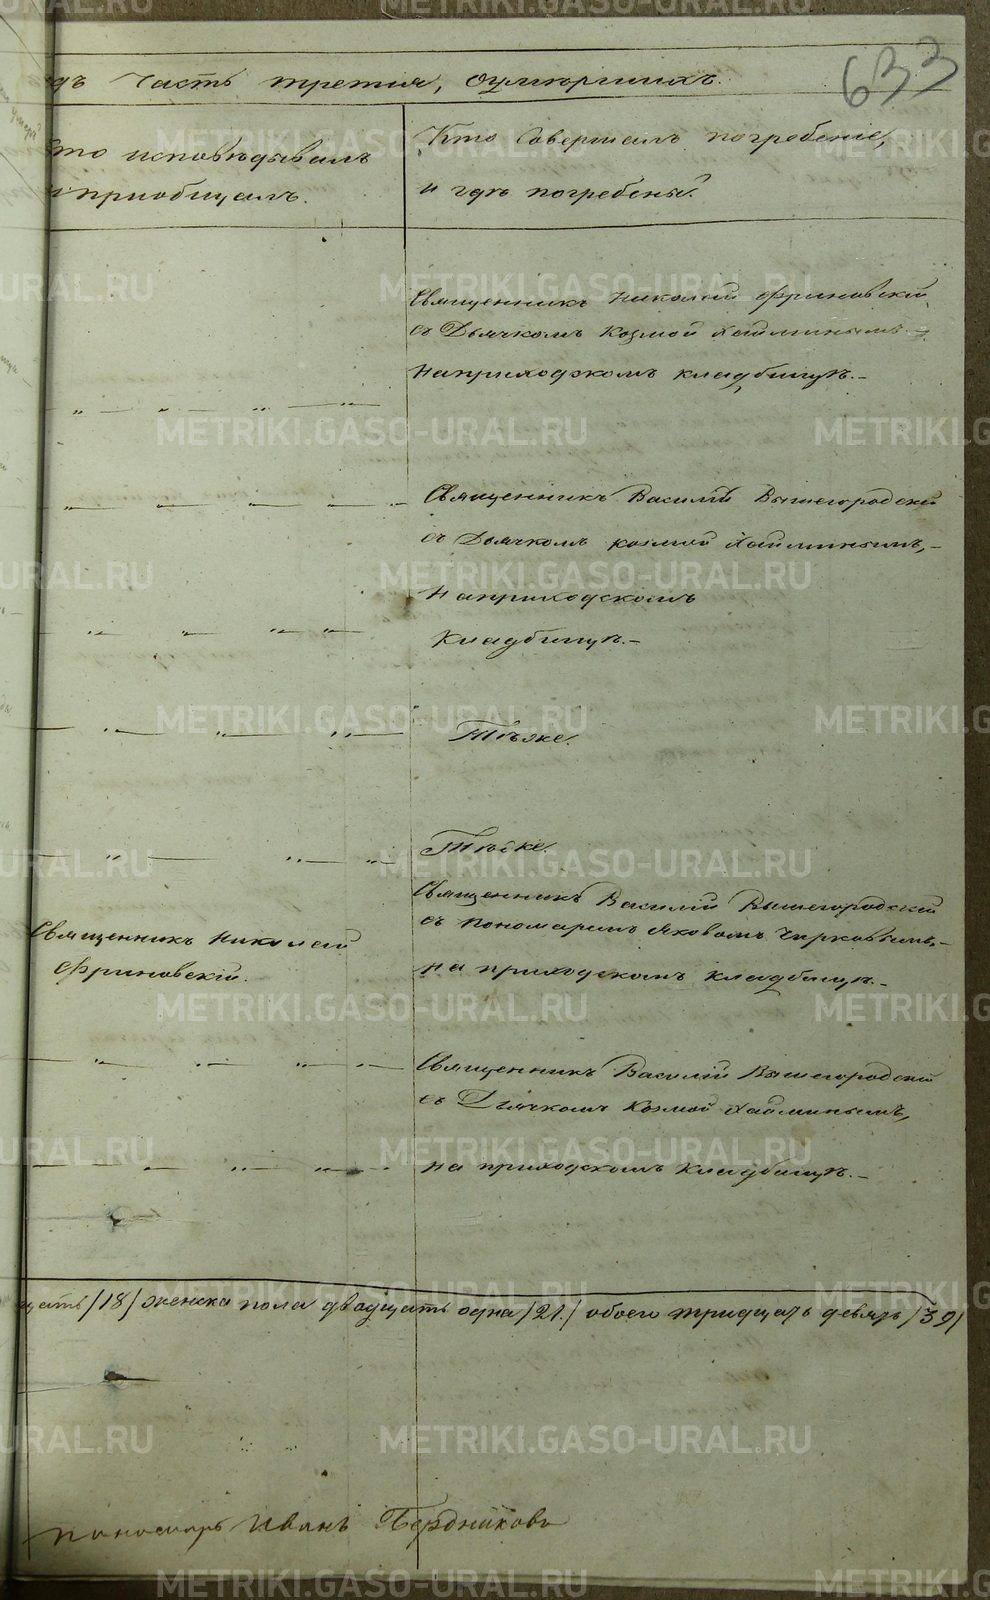 633
Часть третия, оумершихъ.
Кто исповѣдывалъ
и приобщалъ.
Кто Совершалъ погребение,
и гдѣ погребены?
Священникъ Николай Фриновский
съ Дьячкомъ Козмой Хайминымъ
на приходскомъ кладбищѣ.-
Священникъ Василий Вышегородский
съ Дьячкомъ козмой Хайминымъ,-
на приходскомъ
кладбищѣ.-
Тѣже.
Тѣже.
Священникъ Николай
Фриновский.
Священникъ Василий Вышегородский
съ пономаремъ Яковомъ Чирковымъ,-
на приходскомъ кладбищѣ.-
Священникъ Василий Вышегородский
съ Дьячкомъ Козмой Хайминымъ,
на приходскомъ кладбищѣ.-
/18/ женска пола двадцать одна /21./ обоего тридцать девять /39/
пономарь Иванъ Бердниковъ
METRIKI.GASO-URAL.RU